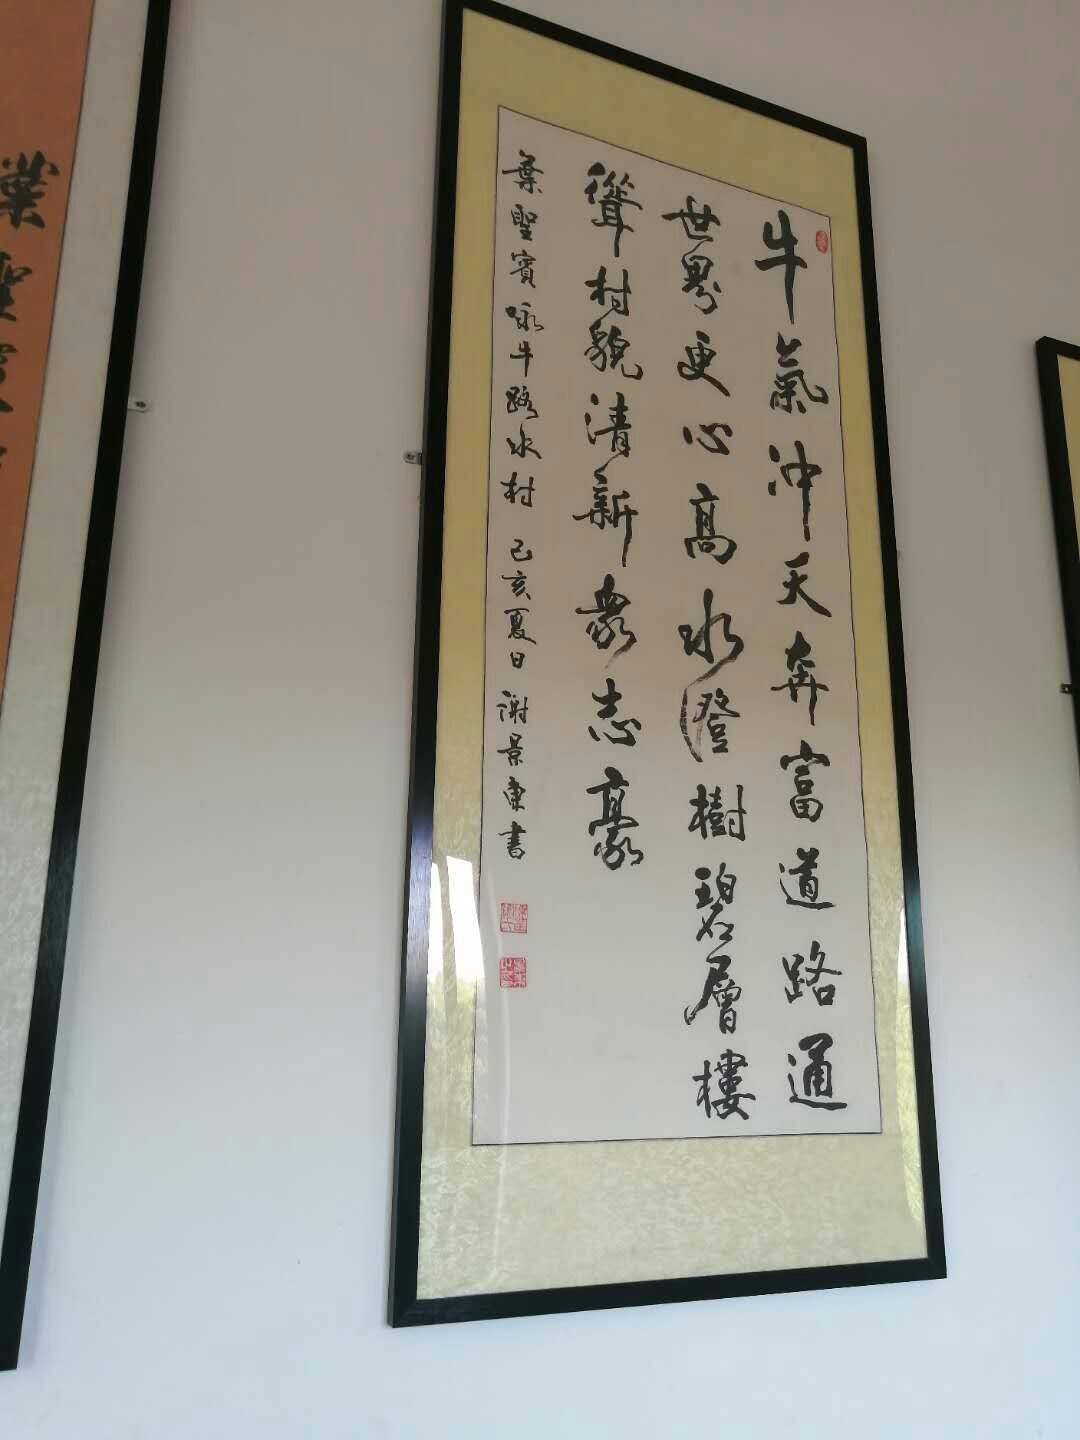 牛氣沖天奔富道路通
世界更心高水澄樹碧層樓
聳村貌清新衆志豪
葉聖賓詠牛路水村 己亥夏日 謝景康書
葉聖賓